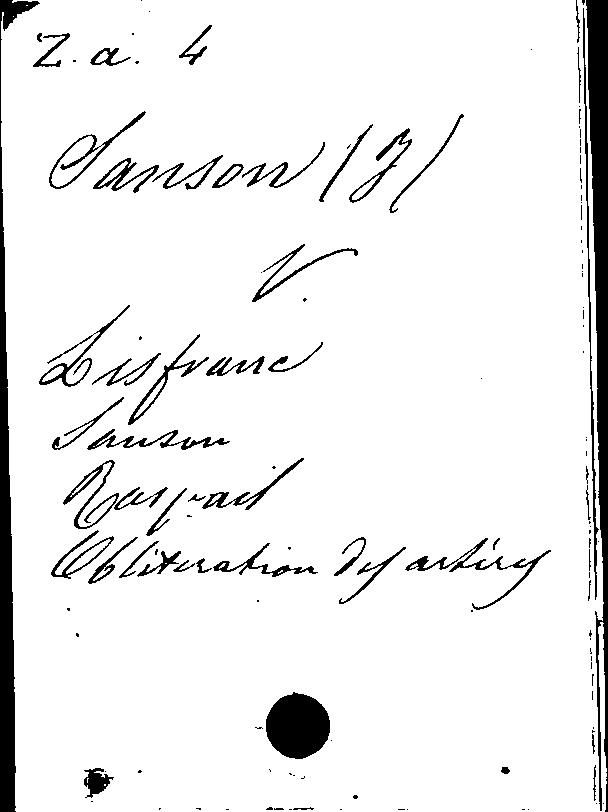 Z. a. 4
Sanson (J)
V.
Lisfranc
Sanson
Raspail
Oblitération des artères